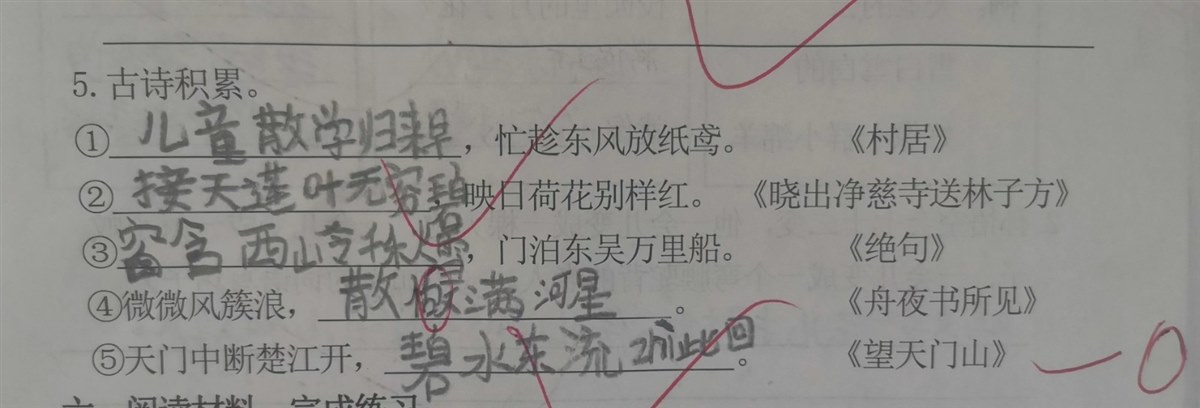 5. 古诗积累。
①儿童散学归来早,忙趁东风放纸鸢。 《村居》
②接天莲叶无穷碧,映日荷花别样红。 《晓出净慈寺送林子方》
③窗含西岭千秋,门泊东吴万里船。 《绝句》
④微微风簇浪,散做满河星。 《舟夜书所见》
⑤天门中断楚江开,碧水东流此回。 《望天门山》 —0
六、阅读材料,完成练习